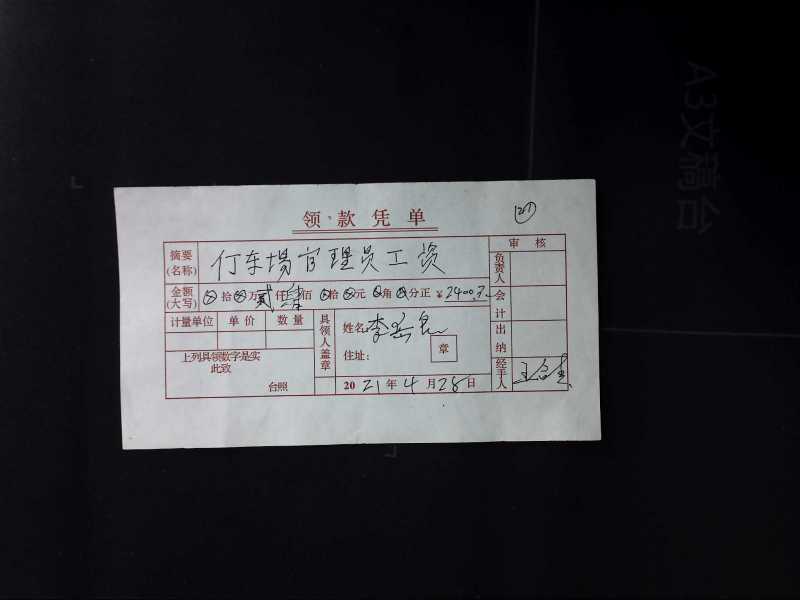 领款凭单
27
摘要(名称) 付车場官理员工资
审核
金额(大写) ⊗拾⊗万贰仟肆佰⊗拾⊗元⊗角⊗分正 ¥2400.元
负责人
会计
计量单位 单价 数量
具领人盖章
姓名: 李
住址: 章
出纳
上列具领数字是实
此致
台照
2021年4月28日
经手人 王
A3文稿台